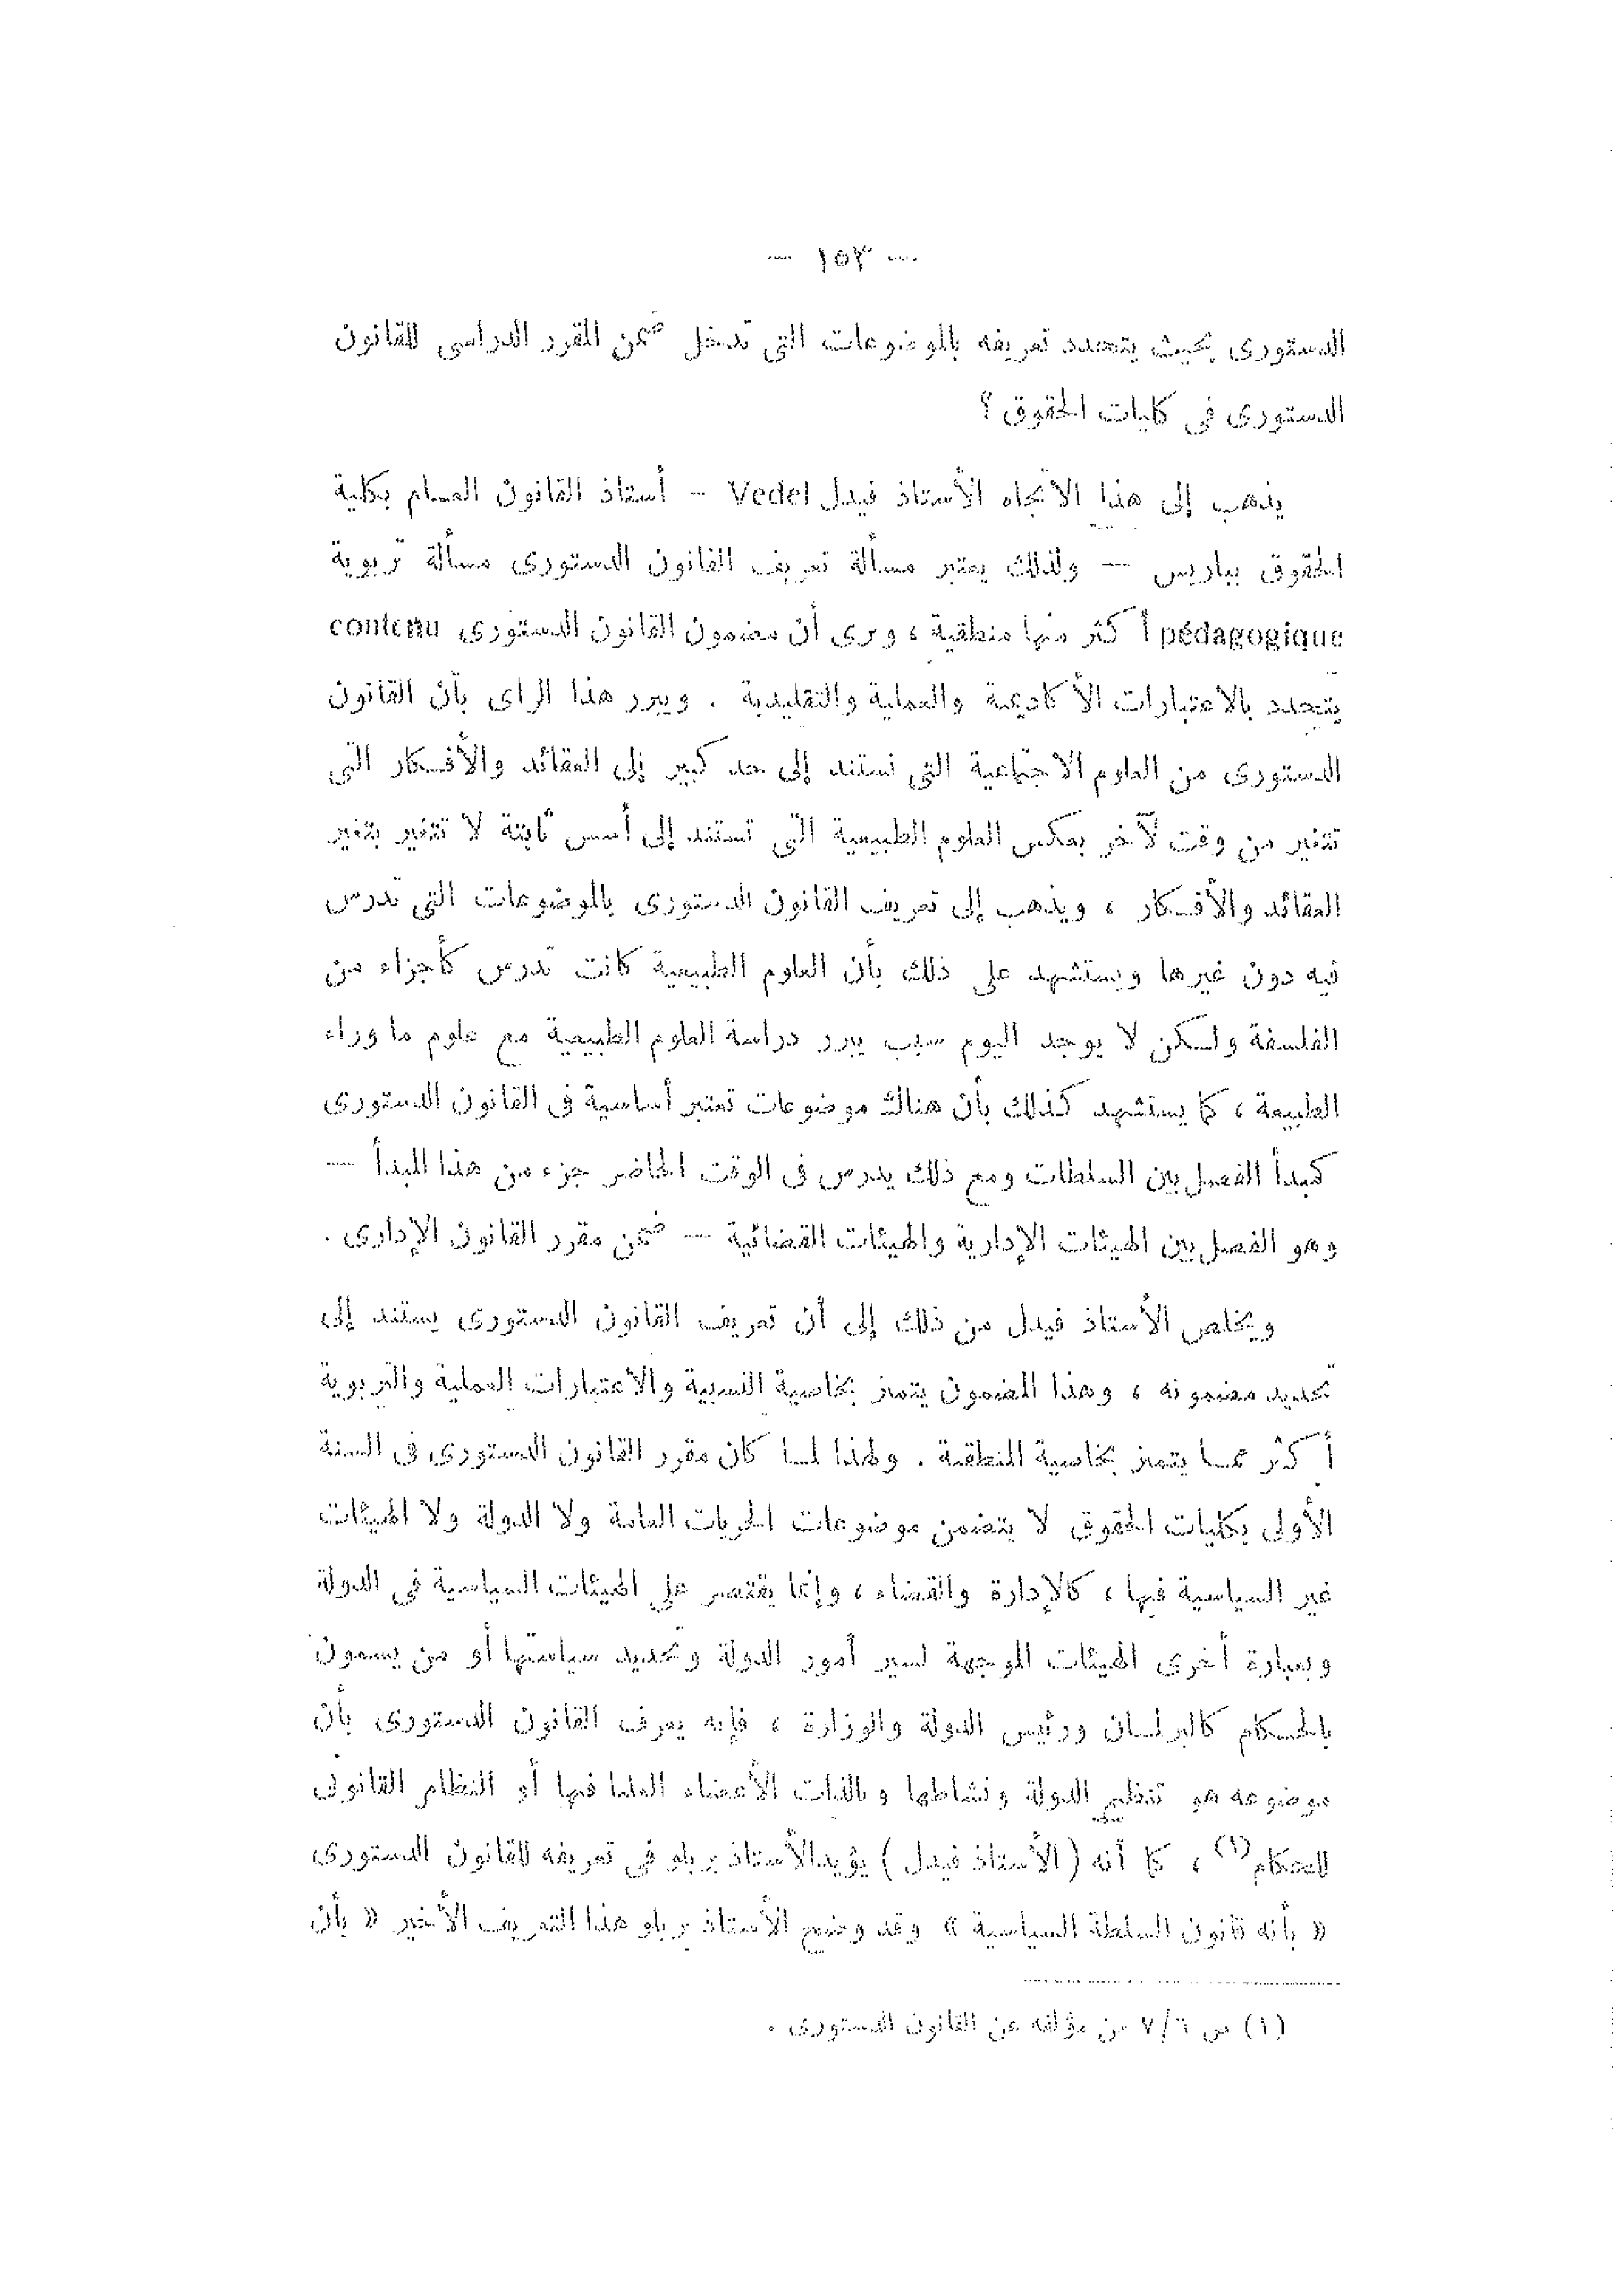 — ١٥٣ —
الدستورى بحيث يتحدد تعريفه بالموضوعات التى تدخل ضمن المقرر الدراسى للقانون
الدستورى فى كليات الحقوق ؟
يذهب إلى هذا الاتجاه الأستاذ فيدل Vedel – أستاذ القانون العام بكلية
الحقوق بباريس — ولذلك يعتبر مسألة تعريف القانون الدستورى مسألة تربوية
pédagogique أكثر منها منطقية ، ويرى أن مضمون القانون الدستورى contenu
يتحدد بالاعتبارات الأكاديمية والعملية والتقليدية . ويبرر هذا الراى بأن القانون
الدستورى من العلوم الاجتماعية التى تستند إلى حد كبير إلى العقائد والأفكار التى
تتغير من وقت لآخر بعكس العلوم الطبيعية التى تستند إلى أسس ثابتة لا تتغير بتغير
العقائد والأفكار ، ويذهب إلى تعريف القانون الدستورى بالموضوعات التى تدرس
فيه دون غيرها ويستشهد على ذلك بأن العلوم الطبيعية كانت تدرس كأجزاء من
الفلسفة ولكن لا يوجد اليوم سبب يبرر دراسة العلوم الطبيعية مع علوم ما وراء
الطبيعة ، كما يستشهد كذلك بأن هناك موضوعات تعتبر أساسية فى القانون الدستورى
كمبدأ الفصل بين السلطات ومع ذلك يدرس فى الوقت الحاضر جزء من هذا المبدأ —
وهو الفصل بين الهيئات الإدارية والهيئات القضائية — ضمن مقرر القانون الإدارى .
ويخلص الأستاذ فيدل من ذلك إلى أن تعريف القانون الدستورى يستند إلى
تحديد مضمونه ، وهذا المضمون يتميز بخاصية النسبية والاعتبارات العملية والتربوية
أكثر مما يتميز بخاصية المنطقية . ولهذا لما كان مقرر القانون الدستورى فى السنة
الأولى بكليات الحقوق لا يتضمن موضوعات الحريات العامة ولا الدولة ولا الهيئات
غير السياسية فيها ، كالإدارة والقضاء ، وإنما يقتصر على الهيئات السياسية فى الدولة
وبعبارة أخرى الهيئات الموجهة لسير أمور الدولة وتحديد سياستها أو من يسمون
بالحكام كالبرلمان ورئيس الدولة والوزارة ، فإنه يعرف القانون الدستورى بأن
موضوعه هو تنظيم الدولة ونشاطها وبالذات الأعضاء العليا فيها أو النظام القانونى
للحكام (١) ، كما أنه (الأستاذ فيدل) يؤيد الأستاذ بريلو فى تعريفه للقانون الدستورى
« بأنه قانون السلطة السياسية » وقد وضح الأستاذ بريلو هذا التعريف الأخير « بأن
(١) ص ٦/٧ من مؤلفه عن القانون الدستورى .